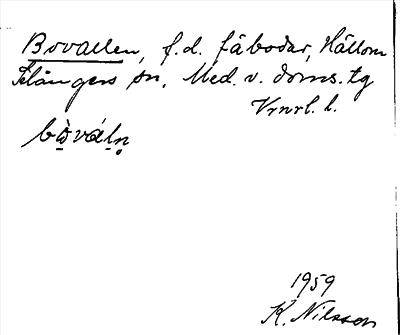 Bovallen, f.d. fäbodar, Hällom
Selångers sn, Med. v. doms. tg
Vrnrl. l.
bo̱̊̀vál̥n̥
1959
K. Nilsson